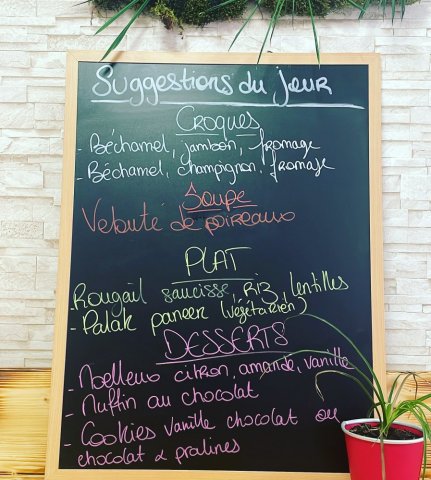 Suggestions du jour
CROQUES
- Béchamel, jambon, fromage
- Béchamel, champignon, fromage
Soupe
Velouté de poireaux
PLAT
- Rougail saucisse, Riz, lentilles
- Palak paneer (végétarien)
DESSERTS
- Moelleux citron, amande, vanille
- Muffin au chocolat
- Cookies vanille chocolat ou
chocolat & pralines